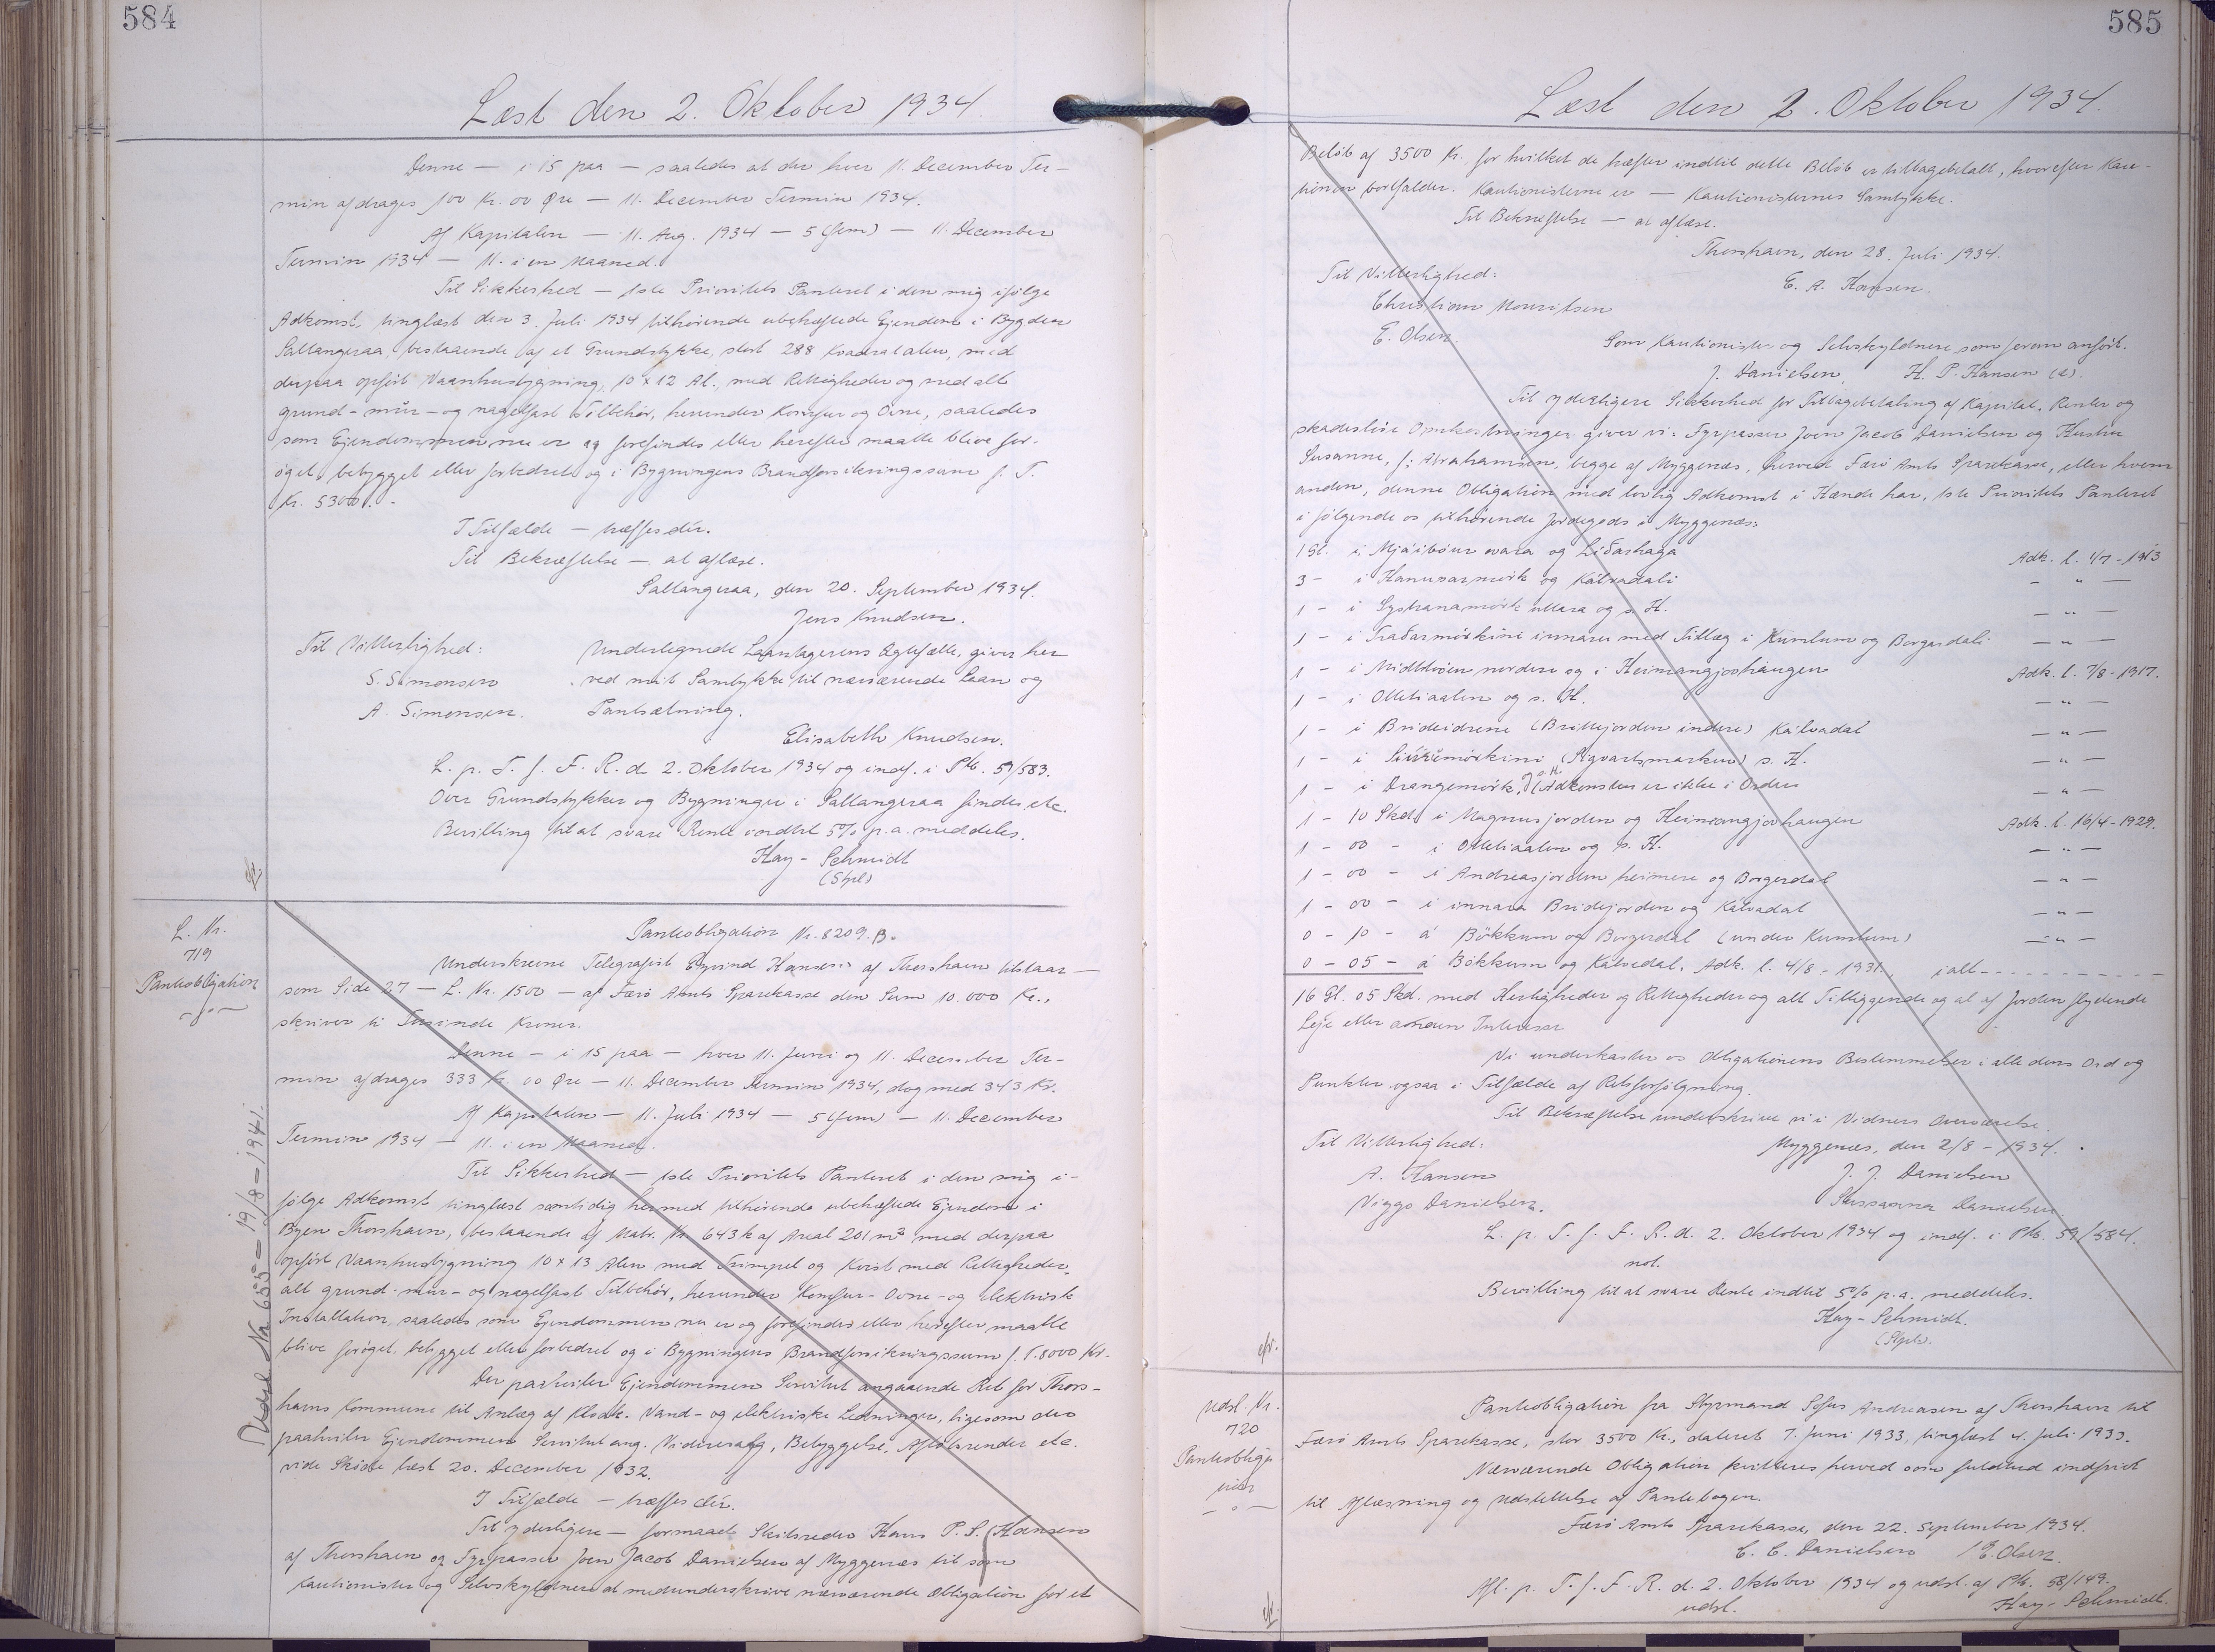 584
Læst den 2. Oktober 1934.
Denne — i 15 paa — saaledes at der hver 11. December Ter-
min afdrages 100 Kr. 00 Øre — 11. December Termin 1934.
Af Kapitalen — 11. Aug. 1934 — 5 (fem) — 11. December
Termin 1934 — 11. i en Maaned.
Til Sikkerhed — 1ste Prioritets Panteret i den mig ifølge
Adkomst, tinglæst den 3. Juli 1934 tilhørende ubehæftede Ejendom i Bygden
Saltangeraa, bestaaende af et Grundstykke, stort 288 Kvadratalen, med
derpaa opført Vaaningsbygning, 10 x 12 Al. med Rettigheder og med alt
grund- mur- og nagelfast Tilbehør, herunder Komfur og Ovne, saaledes
som Ejendommen nu er og forefindes eller herefter maatte blive for-
øget, bebygget eller forbedret og i Bygningens Brandforsikringssum f. T.
Kr. 5300.-
I Tilfælde — træffes dér.
Til Bekræftelse — at aflæse.
Saltangeraa, den 20. September 1934.
Jens Knudsen.
Til Vitterlighed: Undertegnede Laantagerens Ægtefælle, giver her
S. Simonsen ved mit Samtykke til nærværende Laan og
A. Simonsen. Pantsætning.
Elisabeth Knudsen.
L. p. T. f. F. R. d. 2. Oktober 1934 og indf. i Ptb. 59/583.
Over Grundstykker og Bygninger i Saltangeraa findes etc.
Bevilling til at svare Rente indtil 5% p.a. meddeles.
Hay-Schmidt
(Stpl)
L. Nr.
719
Panteobligation
Panteobligation Nr. 8209. B.
Underskrevne Telegrafist Eyvind Hansen af Thorshavn tilstaar —
som Side 27 — L. Nr. 1500 — af Færø Amts Sparekasse den Sum 10.000 Kr.,
skriver ti Tusinde Kroner.
Denne — i 15 paa — hver 11. Juni og 11. December Ter-
min afdrages 333 Kr. 00 Øre — 11. December Termin 1934, dog med 343 Kr.
Af Kapitalen — 11. Juli 1934 — 5 (fem) — 11. December
Termin 1934 — 11. i en Maaned.
Til Sikkerhed — 1ste Prioritets Panteret i den mig i-
følge Adkomst tinglæst samtidig hermed tilhørende ubehæftede Ejendom i
Byen Thorshavn, bestaaende af Matr. Nr. 643k af Areal 201 m² med derpaa
opført Vaaningsbygning 10 x 13 Alen med Trimpel og Kvist med Rettigheder,
alt grund- mur- og nagelfast Tilbehør, herunder Komfur- Ovne- og elektrisk
Installation, saaledes som Ejendommen nu er og forefindes eller herefter maatte
blive forøget, bebygget eller forbedret og i Bygningens Brandforsikringssum f. T. 8000 Kr.
Der paahviler Ejendommen Servitut angaaende Ret for Thors-
havns Kommune til Anlæg af Kloak- Vand- og elektriske Ledninger, ligesom der
paahviler Ejendommen Servitut ang. Videresalg, Bebyggelse, Afløbsrender etc.
vide Skøde læst 20. December 1932.
I Tilfælde — træffes dér.
Til yderligere — formaaet Skibsreder Hans P. S. Hansen
af Thorshavn og Fyrpasser Joen Jacob Danielsen af Myggenæs til som
Kautionister og Selvskyldnere at medunderskrive nærværende Obligation for et
Udsl. Nr. 635 - 19/8 - 1941.
585
Læst den 2. Oktober 1934.
Beløb af 3500 Kr. for hvilket de hæfter indtil dette Beløb er tilbagebetalt, hvorefter Kau-
tionen bortfalder. Kautionisterne er — Kautionisternes Samtykke.
Til Bekræftelse — at aflæse.
Thorshavn, den 28. Juli 1934.
Til Vitterlighed: E. A. Hansen.
Christian Mouritsen
E. Olsen. Som Kautionister og Selvskyldnere som foran anført.
J. Danielsen, H. P. Hansen
Til yderligere Sikkerhed for Tilbagebetaling af Kapital, Renter og
skadesløse Omkostninger giver vi: Fyrpasser Joen Jacob Danielsen og Hustru
Susanne, f: Abrahamsen, begge af Myggenæs, herved Færø Amts Sparekasse, eller hvem
anden, denne Obligation med lovlig Adkomst i Hænde har, 1ste Prioritets Panteret
i følgende os tilhørende Jordegods i Myggenæs:
1 Gl. i Mjáibour ovara og Liðarhaga Adk. l. 4/7-1913
3 - i Hanusarmørk og Kálvadali — " —
1 - i Systranamørk uttara og s. H. — " —
1 - i Traðarmørkini innaru med Tillæg i Kumlum og Borgardali — " —
1 - i Midtbøen nordere og i Heimangjovhaugen Adk. l. 7/8-1917.
1 - i Ottetiaalen og s. H. — " —
1 - i Brideidrene (Brittejorden indere) Kálvadal — " —
1 - i mørkini (Sigvartsmarken) s. H. — " —
1 - i Drangemørk, s. H. (Adkomsten er ikke i Orden — " —
1 - 10 Skd. i Magnusjorden og Heimangjovhaugen Adk. l. 16/4-1929.
1 - 00 - i Ottetiaalen og s. H. — " —
1 - 00 - i Andreasjorden heimere og Borgardal — " —
1 - 00 - i innara Bridejorden og Kalvadal — " —
0 - 10 - á Bökkum og Borgerdal (under Kumlum) — " —
0 - 05 - á Bökkum og Kalvadal, Adk. l. 4/8-1931. ialt
16 Gl. 05 Skd. med Herligheder og Rettigheder og alt Tilliggende og al af Jorden flydende
Leje eller anden Interesse
Vi underkaster os Obligationens Bestemmelser i alle dens Ord og
Punkter ogsaa i Tilfælde af Retsforfølgning.
Til Bekræftelse underskrive vi i Vidners Overværelse.
Til Vitterlighed: Myggenæs, den 2/8 - 1934.
A. Hansen J. J. Danielsen
Viggo Danielsen. Sussanna Danielsen.
L. p. T. f. F. R. d. 2. Oktober 1934 og indf. i Ptb. 59/584.
not.
Bevilling til at svare Rente indtil 5% p.a. meddeles.
Hay-Schmidt.
(Stpl).
Udsl. Nr.
720
Panteobliga-
tion
Panteobligation fra Styrmand Sofus Andreasen af Thorshavn til
Færø Amts Sparekasse, stor 3500 Kr., dateret 7. Juni 1933, tinglæst 4. Juli 1933.
Nærværende Obligation kvitteres herved som fuldtud indfriet
til Aflæsning og Udslettelse af Pantebogen.
Færø Amts Sparekasse, den 22. September 1934.
C. C. Danielsen / E. Olsen.
Afl. p. T. f. F. R. d. 2. Oktober 1934 og udsl. af Ptb. 58/149.
udsl. Hay-Schmidt.